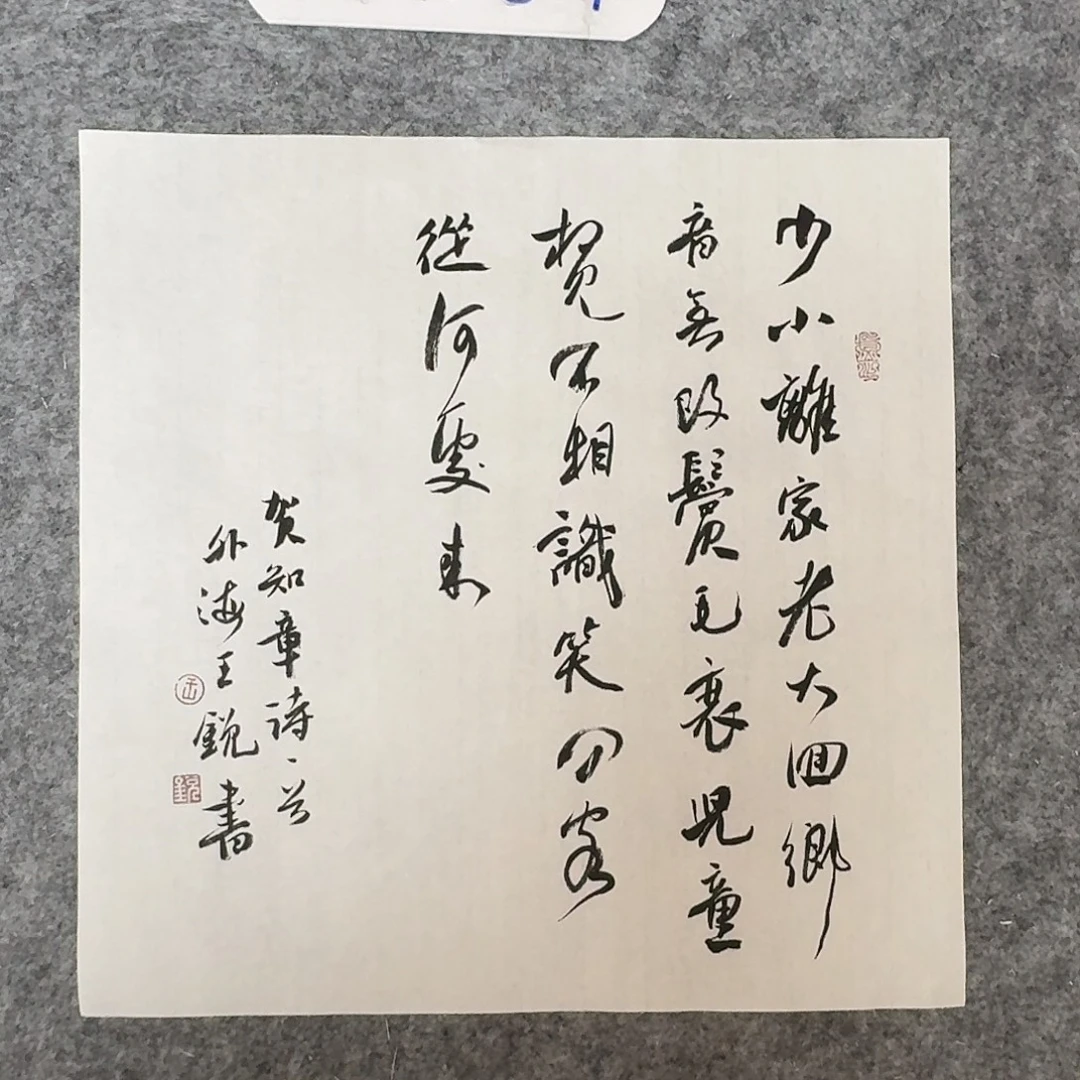 少小離家老大囬鄉
音無改鬢毛衰兒童
相見不相識笑問客
從何處來
贺知章詩一首
外海王銳書